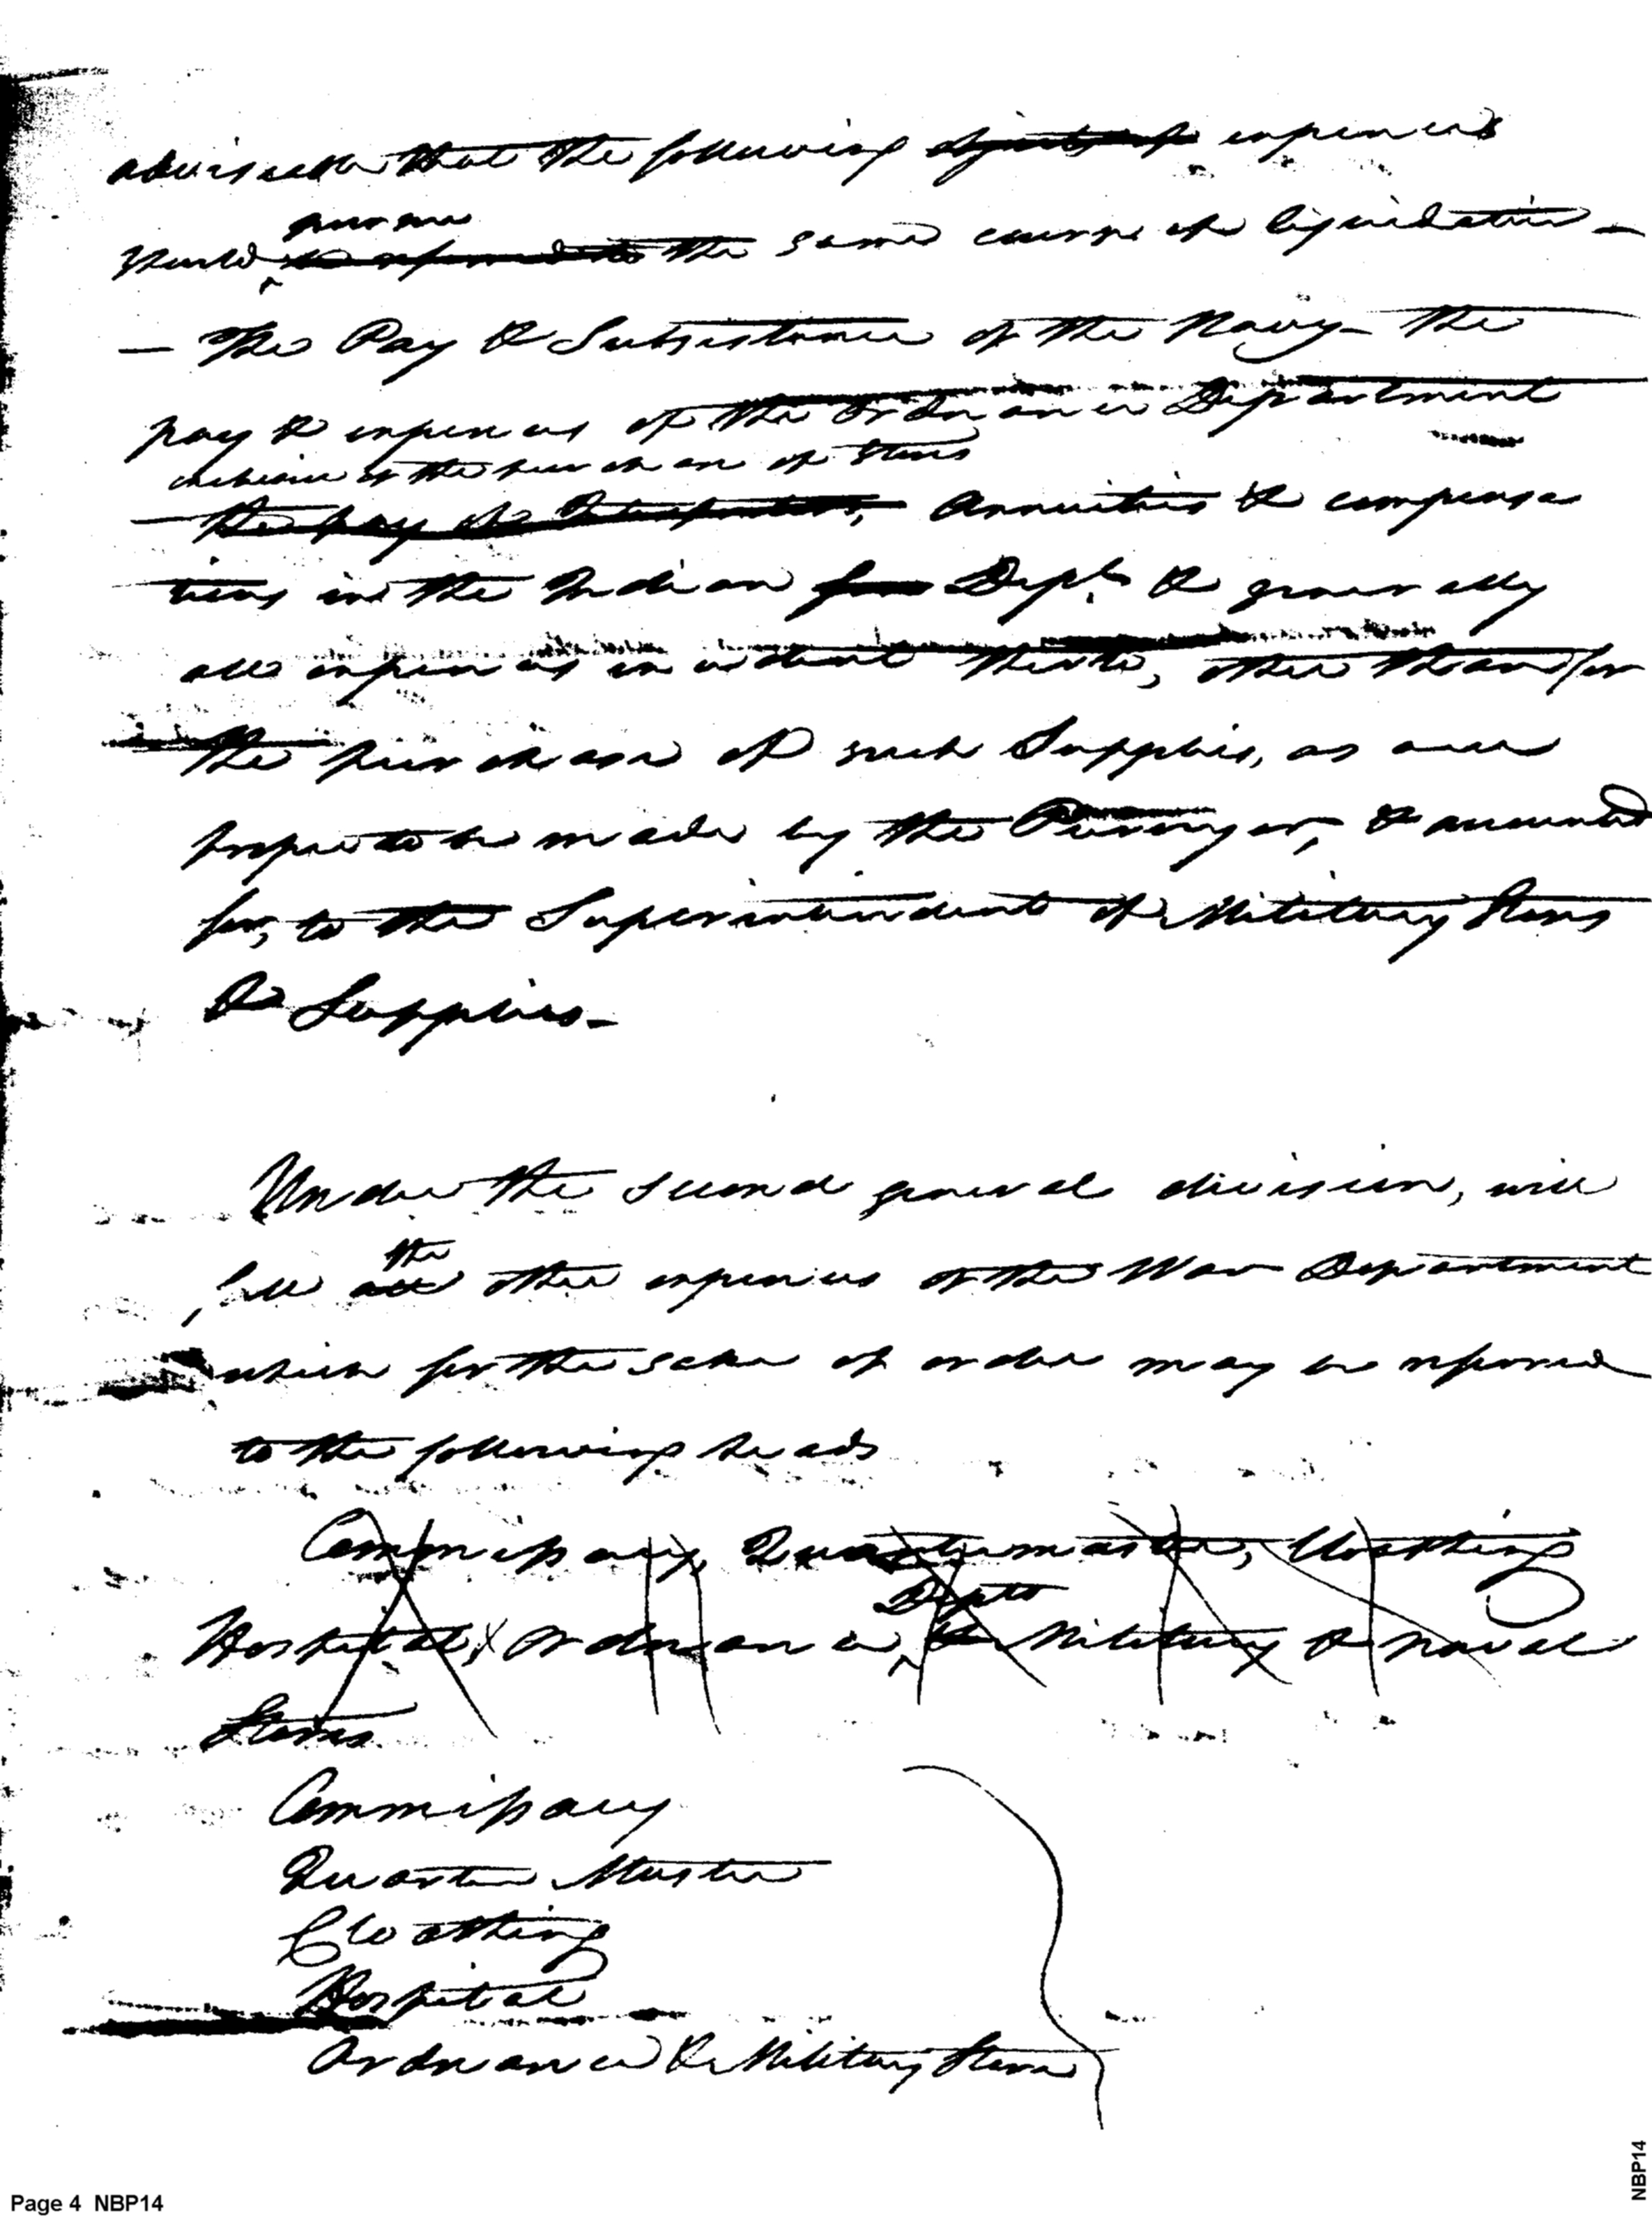 adviseable that the following objects of expences
pursue
should be referred to the same course of liquidation –
– The Pay & Subsistence of the Navy – the
pay & expences of the Ordnance Department
exclusive of the purchase of Stores
– the pay of, Annuities & compensa
tions in the Indian for Dept. & generally
all expences incident thereto, other than for
the purchase of such Supplies, as are
proper to be made by the Purveyor, & accounted
for, to the Superintendent of Military Stores
& Supplies –
Under the second general division, will
the
fall all other expences of the War Department
which for the sake of order may be referred
to the following heads
Commissary, Quartermaster, Cloathing
Depts
Hospital, Ordnance, & Military & Naval
Stores
Commissary
Quarter Master
Cloathing
Hospital
Ordnance & Military Stores
Page 4 NBP14
NBP14